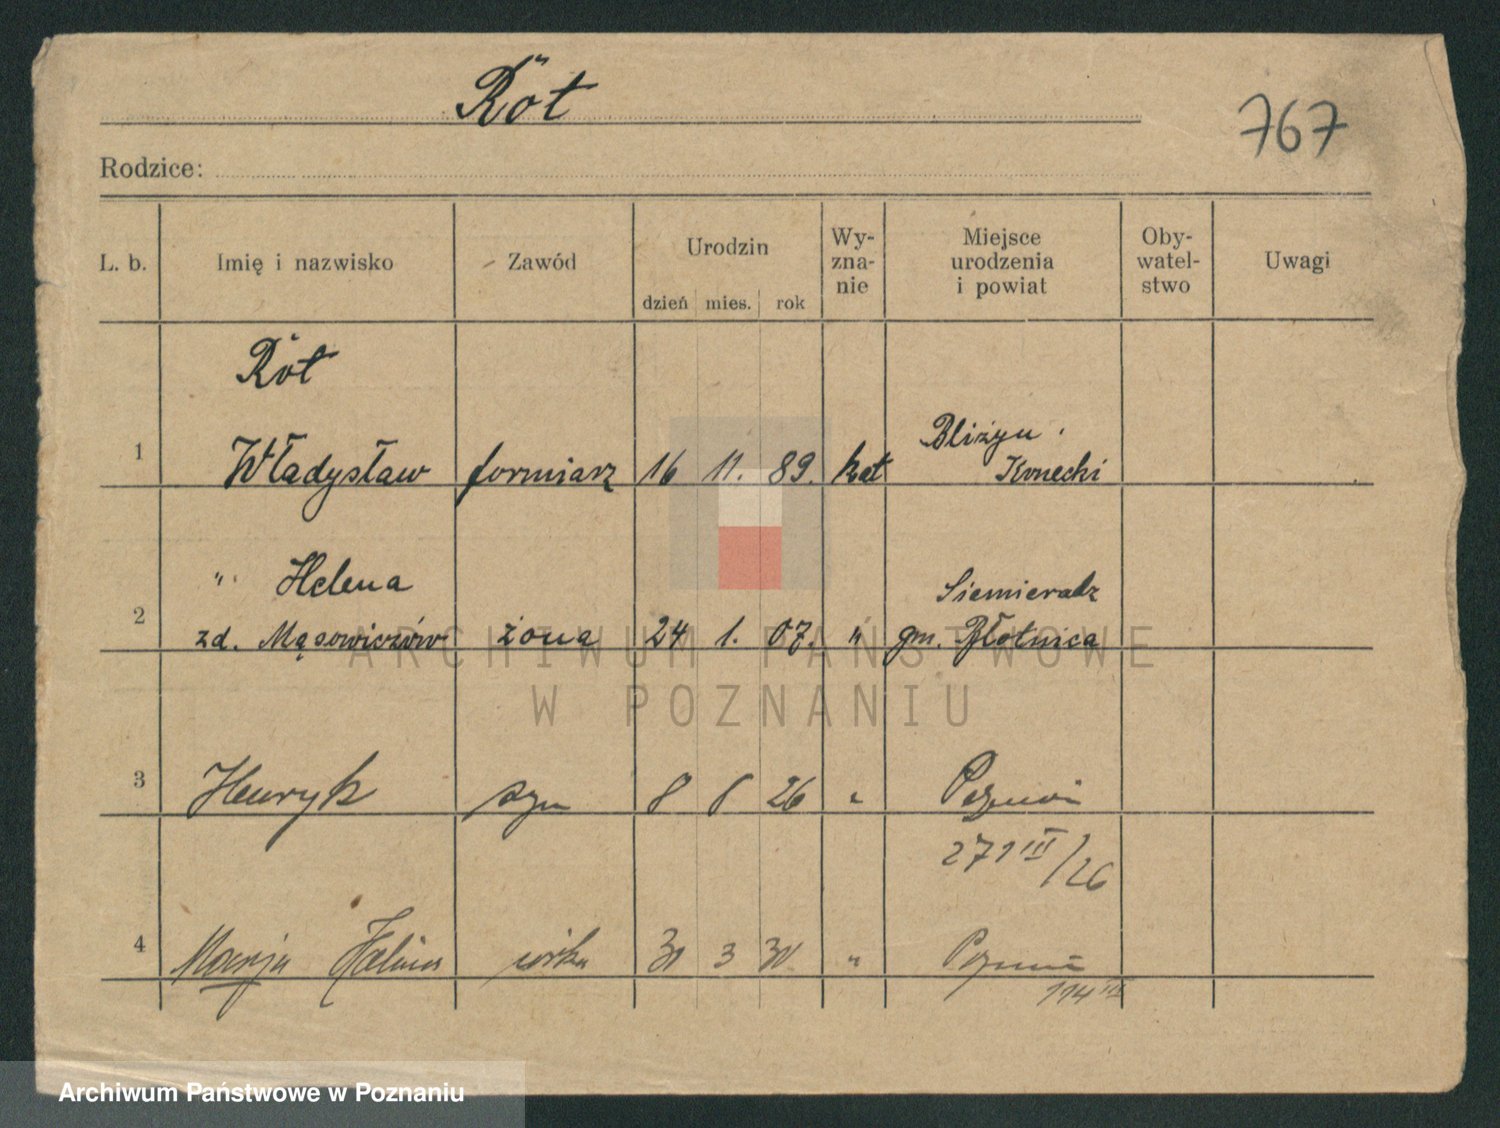 Rőt
767
Rodzice:
L. b. Imię i nazwisko Zawód Urodzin Wy-zna-nie Miejsce urodzenia i powiat Oby-watel-stwo Uwagi
dzień mies. rok
Rőt
1 Władysław formiarz 16 11. 89. kat Bliżyn
Konecki
" Helena Siemieradz
2 zd. Mąsowiczów żona 24 1. 07. " gm. Błotnica
3 Henryk syn 8 6 26 " Poznań
271 III/26
4 Marja Halina córka 30 3 30 " Poznań
114 III
ARCHIWUM PAŃSTWOWE
W POZNANIU
Archiwum Państwowe w Poznaniu